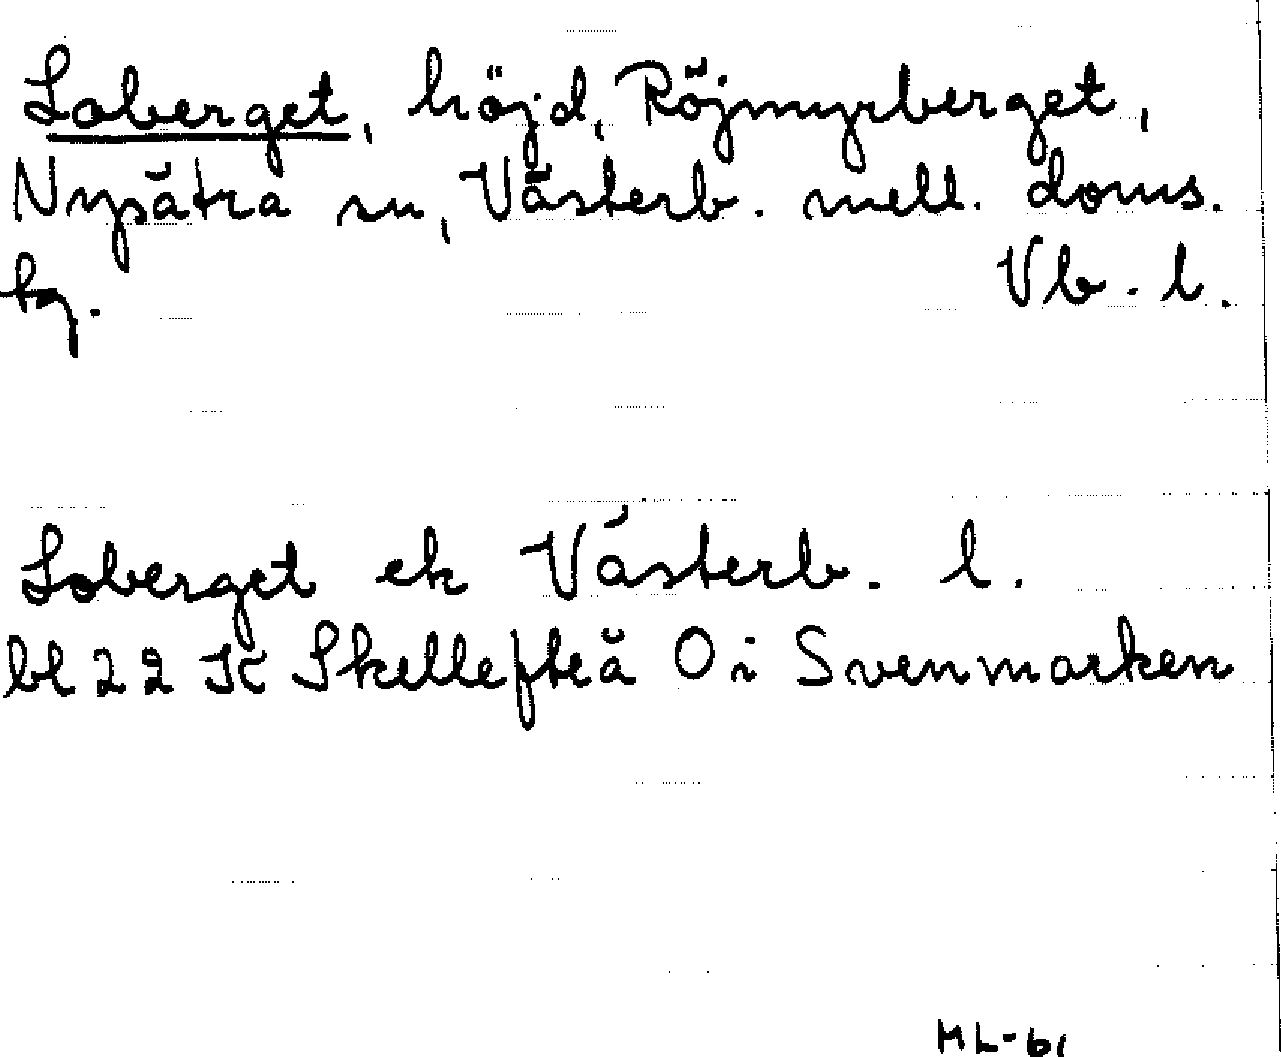 Loberget, höjd, Röjmyrberget,
Nysätra sn, Västerb. mell. doms.
hg. Vb. l.
Loberget ek Västerb. l.
bl 22 K Skellefteå O i Svenmarken
ML-61